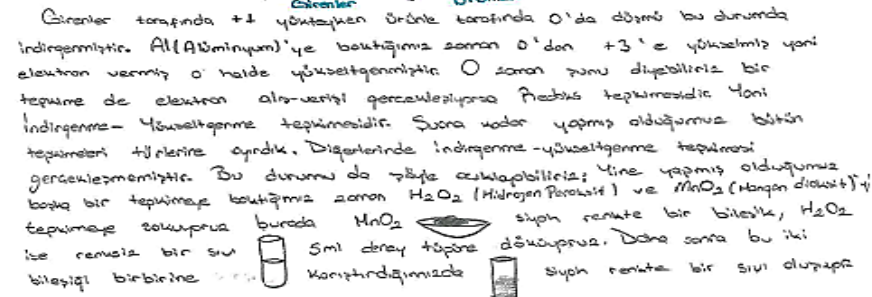 Girenler
Girenler tarafında +1 yüktayken ürünle tarafında 0'da düşmü bu durumda
indirgenmiştir. Al(Alüminyum)'ye baktığımız zaman 0'dan +3'e yükselmiş yani
elektron vermiş o halde yükseltgenmiştir. O zaman şunu diyebiliriz bir
tepkime de elektron alış-verişi gerçekleşiyorsa Redoks tepkimesidir. Yani
İndirgenme- Yükseltgenme tepkimesidir. Şuana kadar yapmış olduğumuz bütün
tepkimeleri türlerine ayırdık. Diğerlerinde indirgenme-yükseltgenme tepkimesi
gerçekleşmemiştir. Bu durumu da şöyle açıklapabiliriz; Yine yapmış olduğumuz
başka bir tepkimeye baktığımız zaman H2O2 (Hidrojen Peroksit) ve MnO2 (Mangan dioksit)'i
tepkimeye sokuyoruz burada MnO2 siyah renkte bir bileşik, H2O2
ise renksiz bir sıvı 5ml deney tüpüne döküyoruz. Daha sonra bu iki
bileşiği birbirine karıştırdığımızda siyah renkte bir sıvı oluşuyor